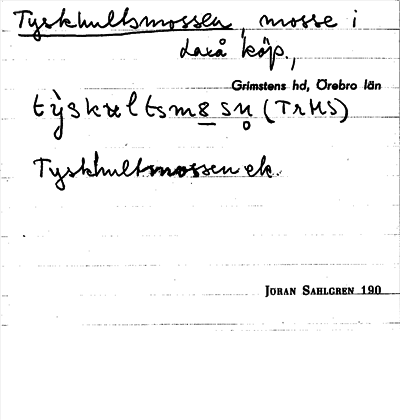 Tyskhultsmossen, mosse i
Laxå köp.,
Grimstens hd, Örebro län
(TrHS)
Tyskhultsmossen ek.
JORAN SAHLGREN 190